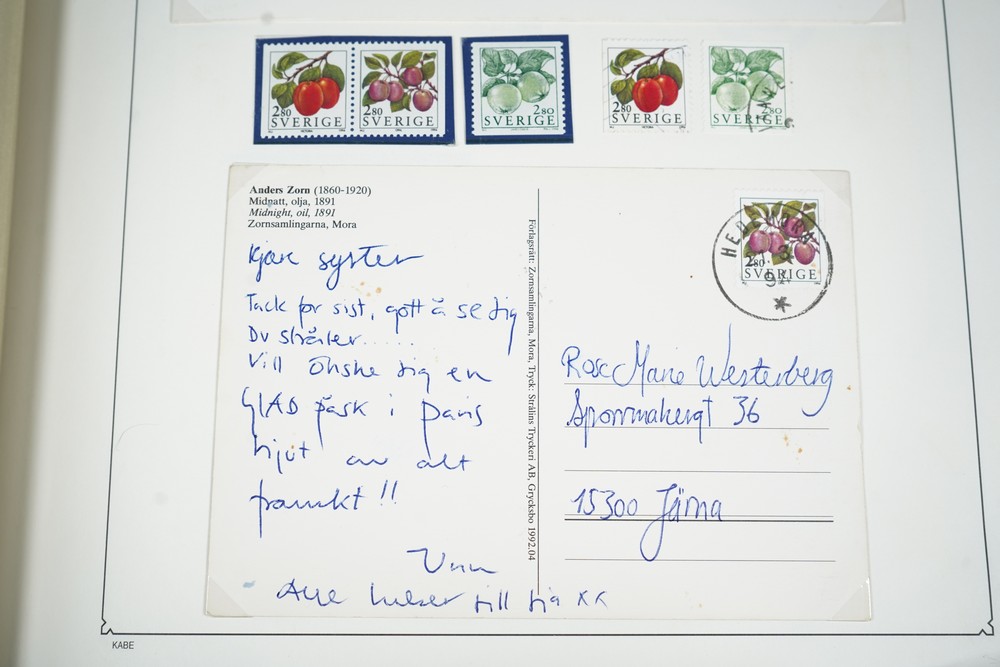 280
SVERIGE
280
SVERIGE
280
SVERIGE
280
SVERIGE
280
SVERIGE
Anders Zorn (1860-1920)
Midnatt, olja, 1891
Midnight, oil, 1891
Zornsamlingarna, Mora
Kjære syster
Tack for sist, gott å se dig
Du stråler.....
Vill önske dig en
GLAD påsk i paris
Njut av alt
franskt!!
Unn
Alle till dig KK
Förlagsrätt: Zornsamlingarna, Mora, Tryck: Strålins Tryckeri AB, Grycksbo 1992.04
280
SVERIGE
Rose Marie Westerberg
36
15300 Järna
KABE